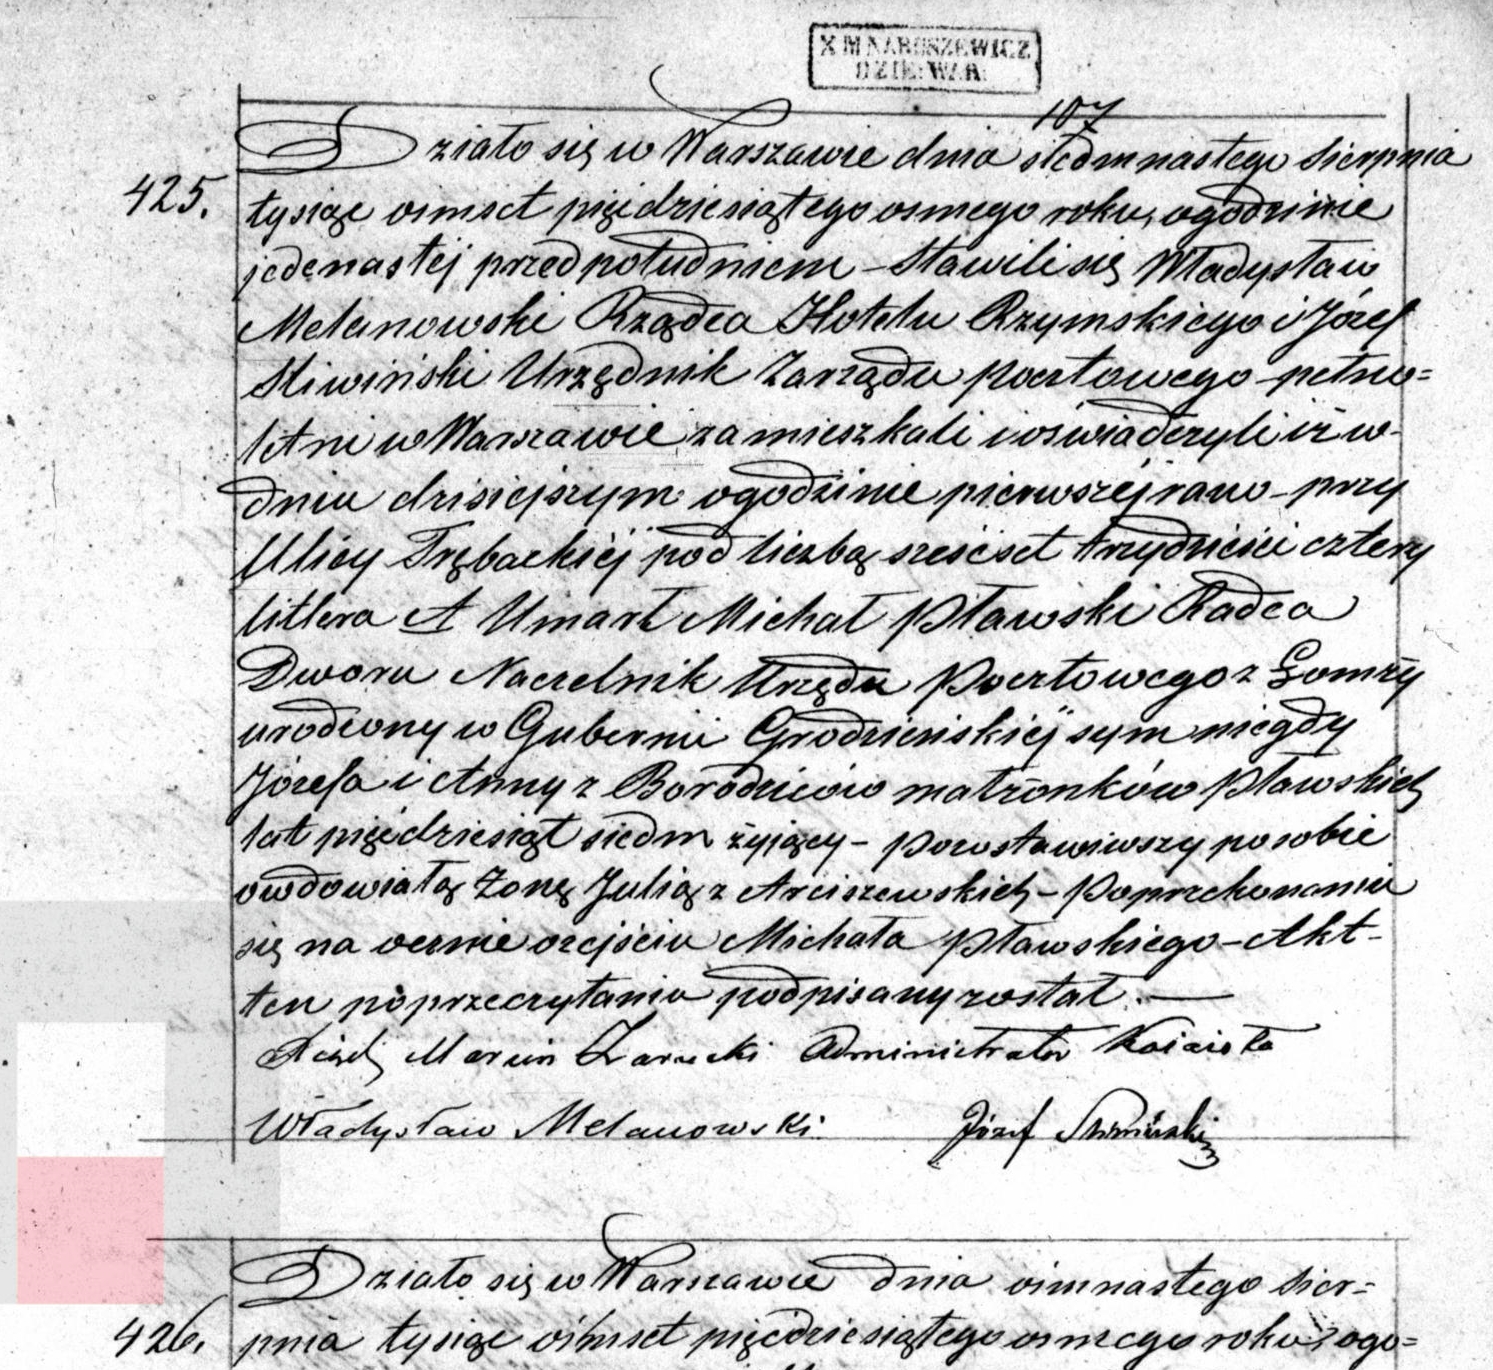 X M NARUSZEWICZ
DZIE: WAR:
107
Działo się w Warszawie dnia siedmnastego Sierpnia
425. tysiąc osmset pięćdziesiątego osmego roku, ogodzinie
jedenastéj przed południem – Stawili się Władysław
Melanowski Rządca Hotelu Rzymskiego i Józef
Śliwiński Urzędnik Zarządu pocztowego – pełno=
letni w Warszawie zamieszkali i oświadczyli iż w
dniu dzisiejszym ogodzinie pierwszéj rano – przy
Ulicy Trębackiéj pod liczbą sześćset trzydzieści cztery
littera A Umarł Michał Pławski Radca
Dworu Naczelnik Urzędu Pocztowego z Łomży
urodzony w Gubernii Grodzieńskiéj syn niegdy
Józefa i Anny z Borodziców małżonków Pławskich
lat pięćdziesiąt siedm żyjący – pozostawiwszy po sobie
owdowiałą Żonę Julią z Arciszewskich – Poprzekonaniu
się na ocznie o zejściu Michała Pławskiego – Akt
ten poprzeczytaniu podpisany został. —
Xiądz Marcin Administrator Kościoła
Władysław Melanowski Józef Śliwiński
Działo się w Warszawie dnia osimnastego Sier=
426. pnia tysiąc ośmset pięćdziesiątego osmego roku, ogo=